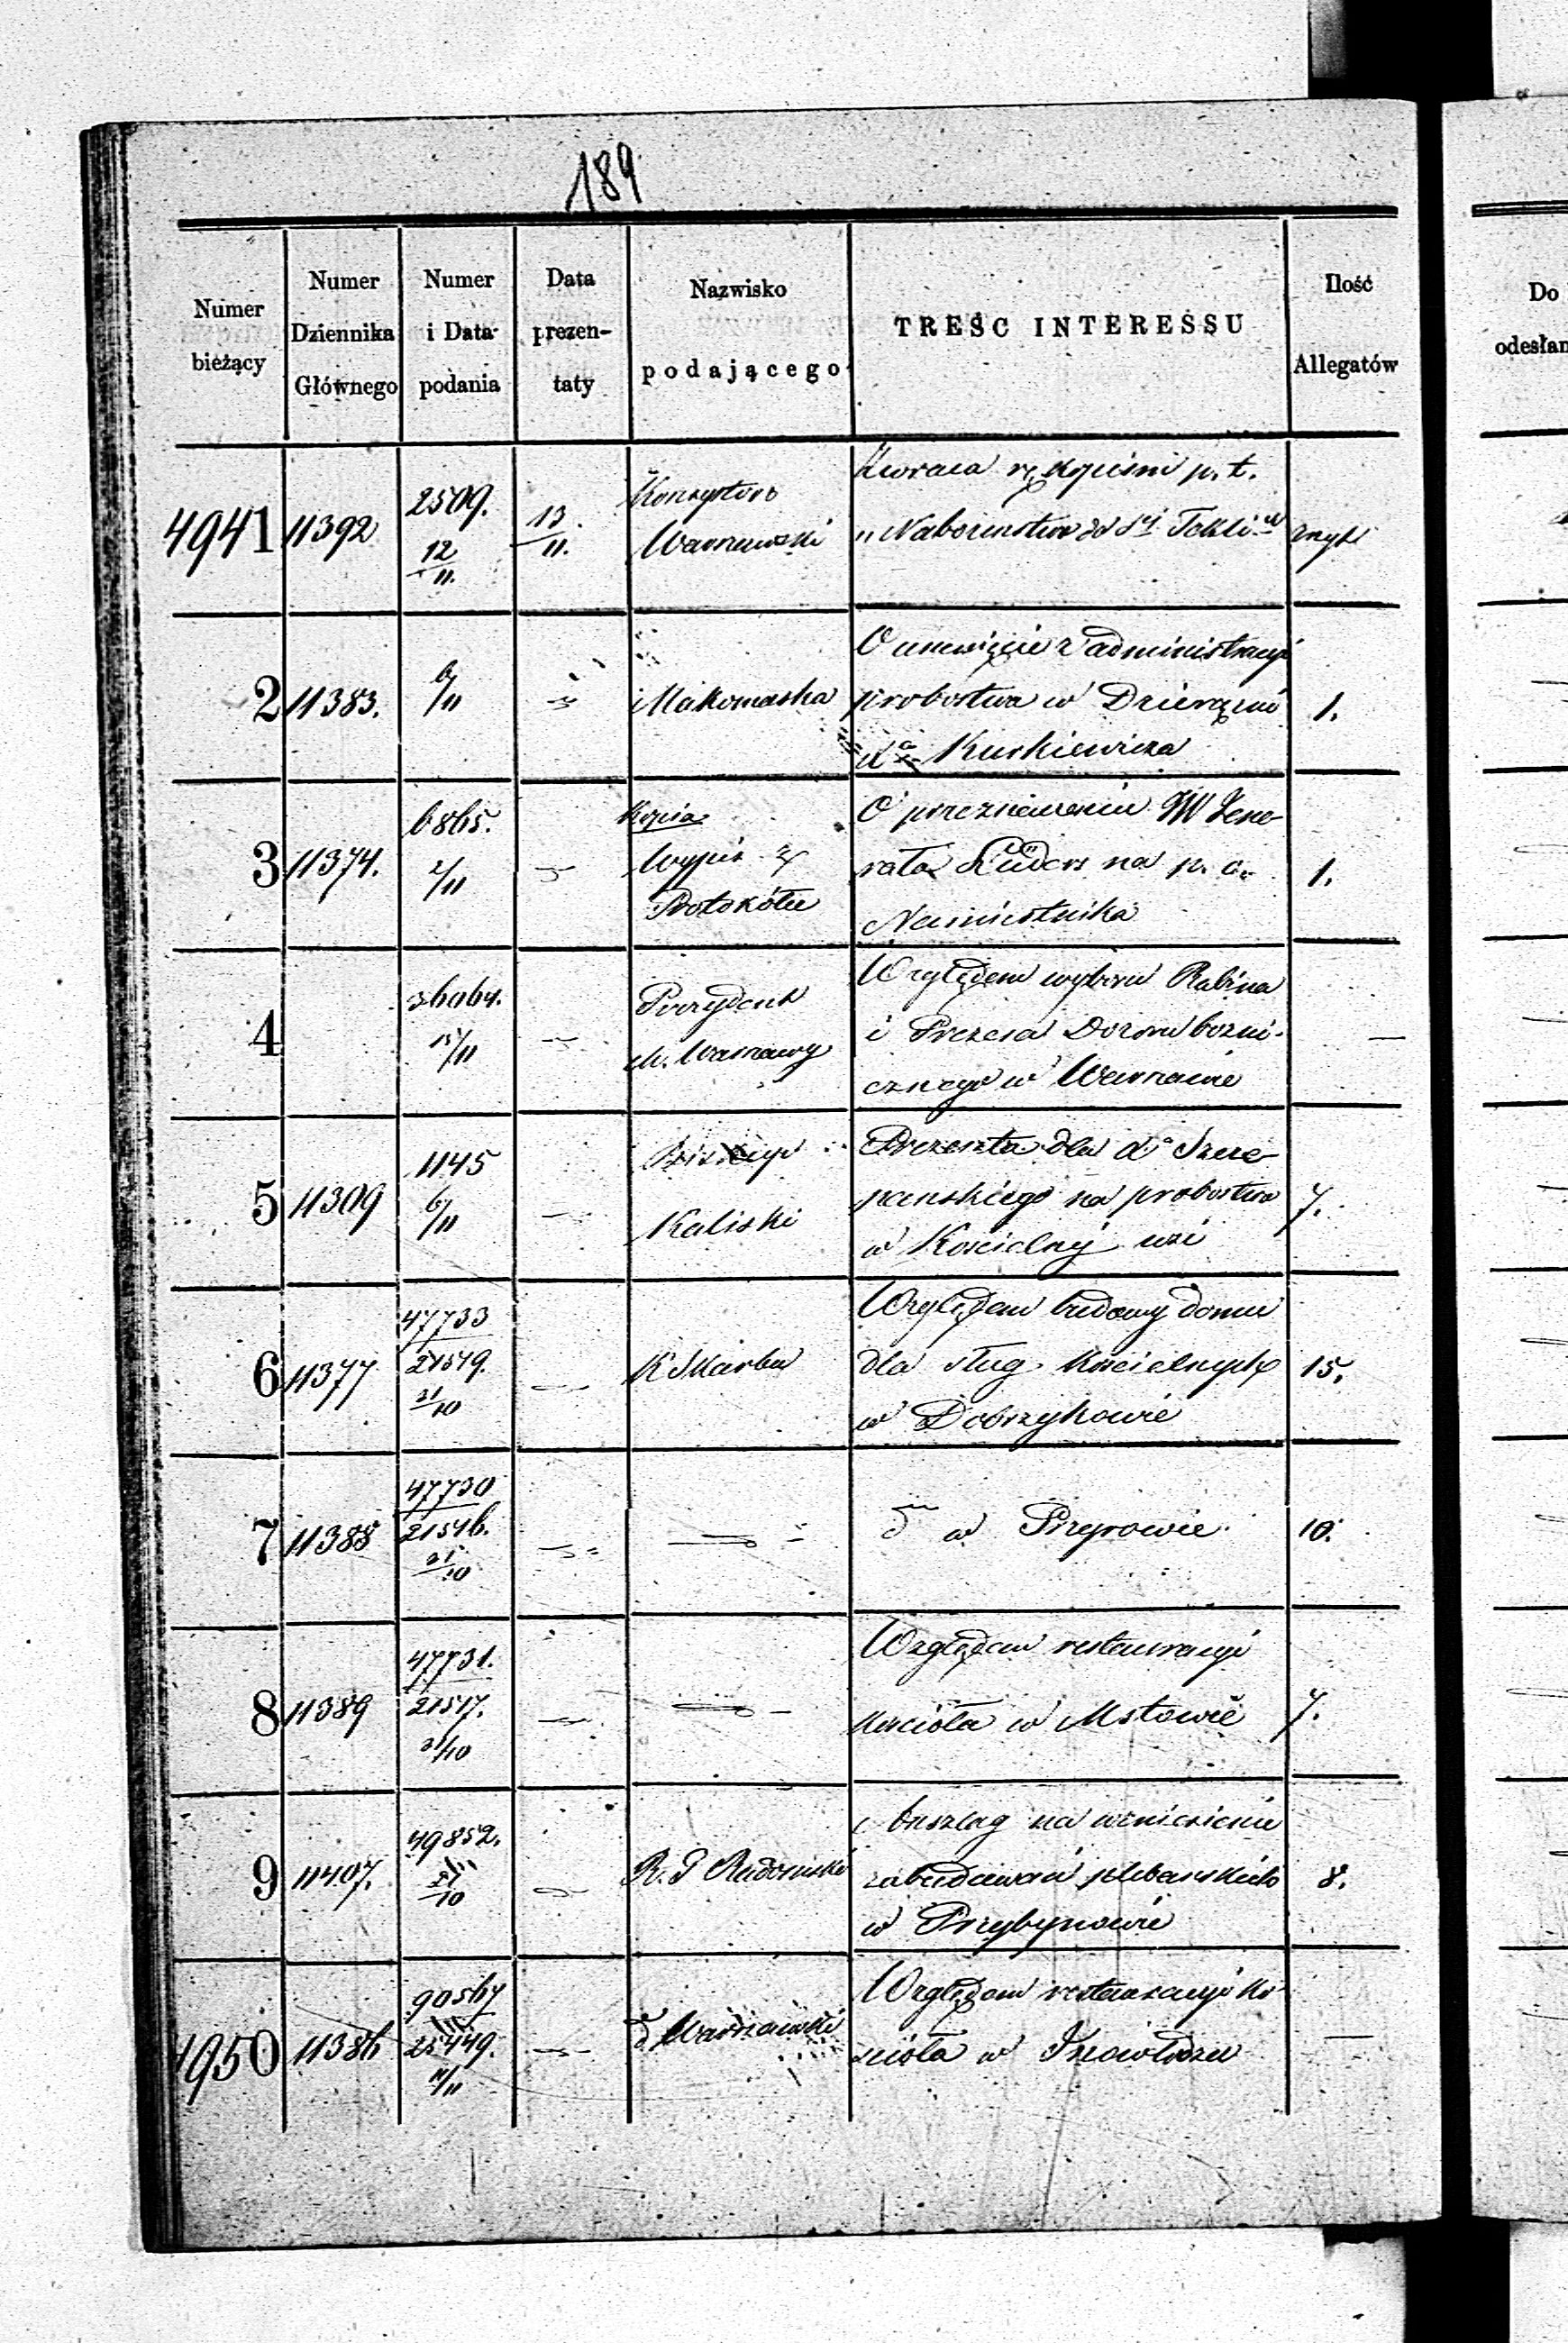 189
Numer bieżący
Numer Dziennika Głównego
Numer i Data podania
Data prezentaty
Nazwisko podającego
TREŚC INTERESSU
Ilość Allegatów
Do
odesłan
4941 11392
2509.
12/11.
13/11.
Konsystorz
Warszawski
Zwraca rękopism p. t.
„Naborzenstwo do Sej Tekli"
2
11383.
6/11
Makomaska
O usunięcie z administracyi
probostwa w Dzierążni
Kurkiewicza
1.
3
11374.
6865.
2/11
Kopia
Wypis z
Protokółu
O przeznaczeniu JW Jene-
rała Lüders na p. o.
Namiestnika
1.
4
36064.
15/11
Prezydent
M. Warszawy
Względem wyboru Rabina
i Prezesa Dozoru bożni-
cznego w Warszawie
—
5
11309
1145
6/11
Biskup
Kaliski
Prezenta dla Szcze-
panskiego na probostwo
w Kościelny wsi
7.
6
11377
47733
21549.
31/10
K Skarbu
Względem budowy domu
dla sług kościelnych
w Dobrzykowie
15.
7
11388
47730
21546.
31/10
do w Przyrowie
10.
8
11389
47731.
21547.
31/10
Względem restauracyi
kościoła w Mstowie
7.
9
11407.
49852.
31/10
R. G Radomski
Anszlag na wzniesienie
zabudowań plebańskich
w Przybynowie
8.
4950 11386
90567
25449.
11/11
do Warszawski
Względem restauracyi ko-
ścioła w Inowłodzu
—